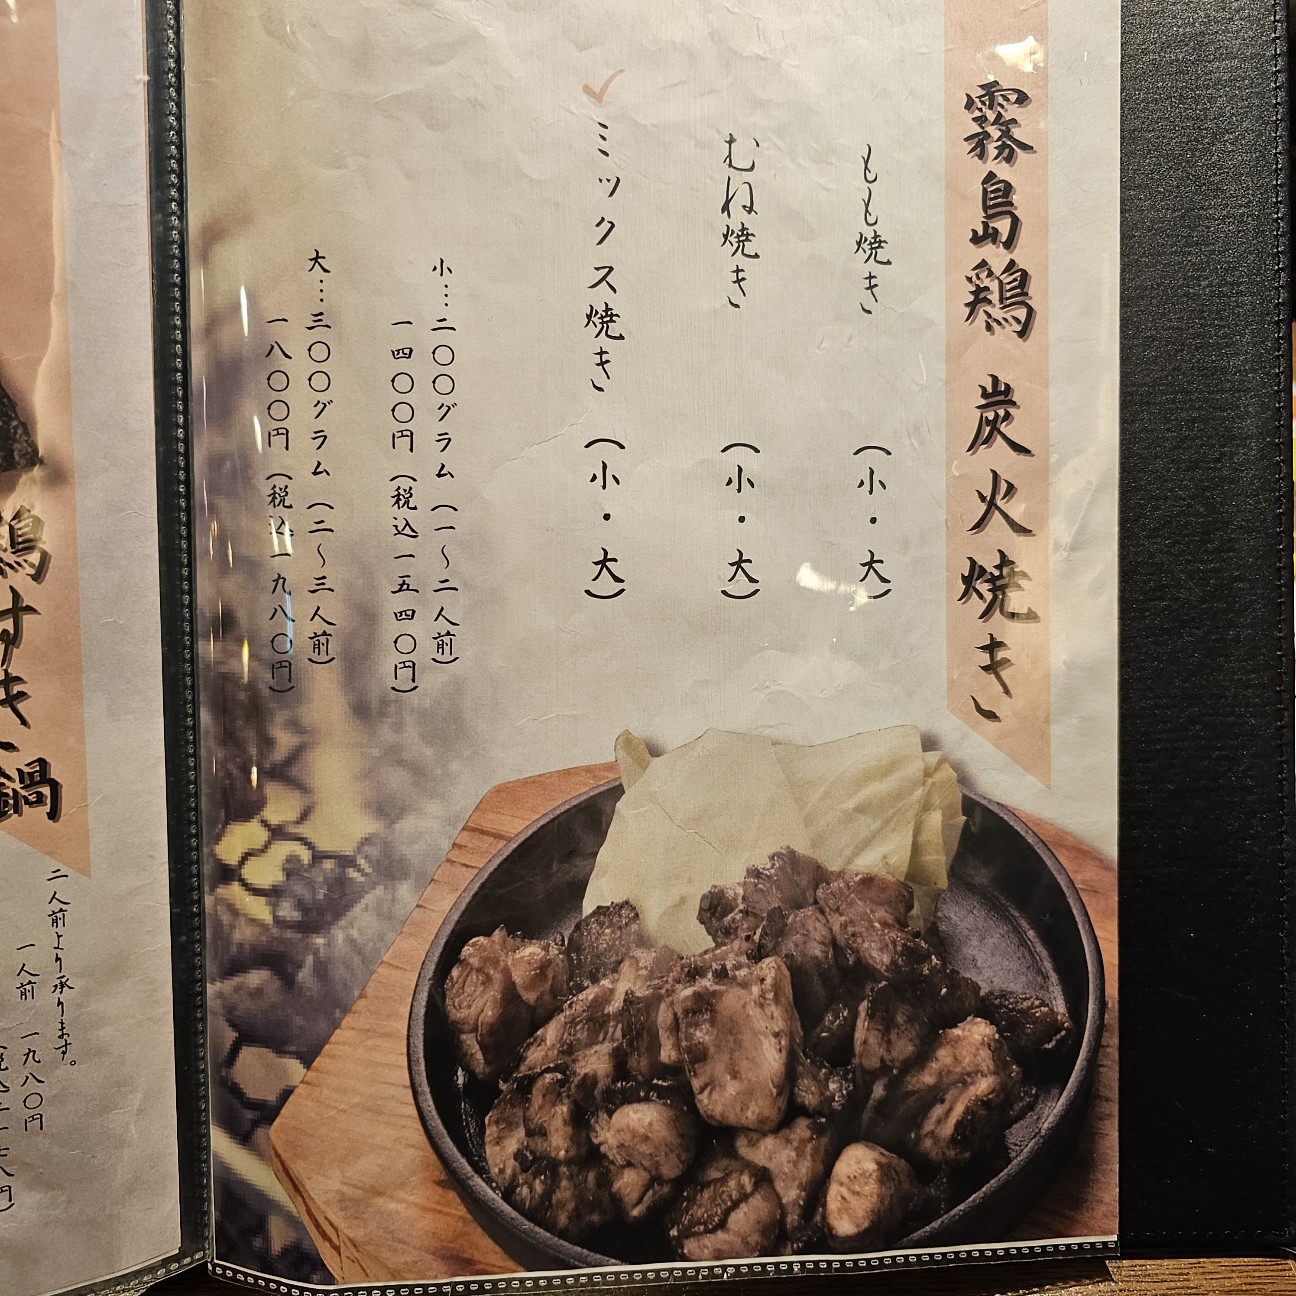 霧島鶏 炭火焼き
もも焼き (小・大)
むね焼き (小・大)
✓ミックス焼き (小・大)
小…二〇〇グラム(一〜二人前)
一四〇〇円(税込一五四〇円)
大…三〇〇グラム(二〜三人前)
一八〇〇円(税込一九八〇円)
鶏すき鍋
二人前より承ります。
一人前 一九八〇円